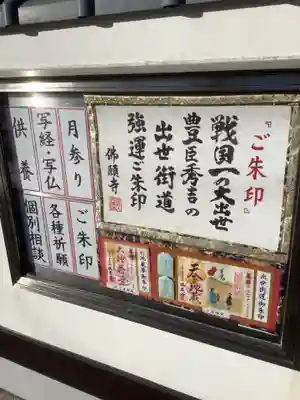 『ご朱印』
戦国一の大出世
豊臣秀吉の
出世街道
強運ご朱印
佛願寺
月参り
写経・写仏
供養
ご朱印
各種祈願
個別相談
出世街道御朱印